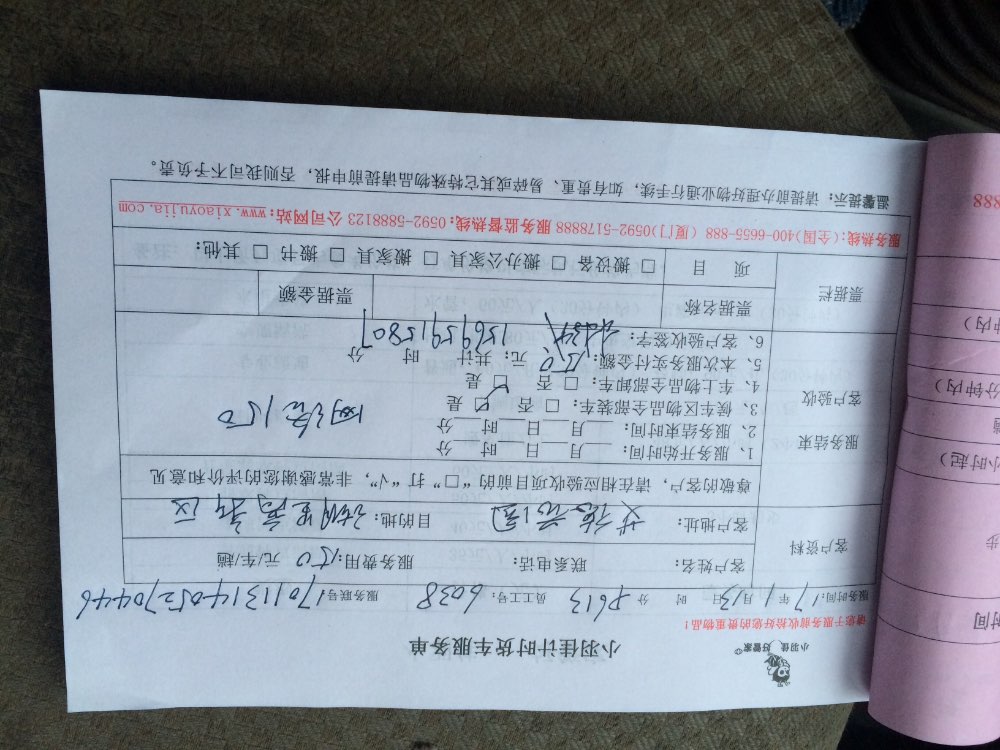 小羽佳 好管家
小羽佳计时货车服务单
请您于服务前收拾好您的贵重物品！
服务时间：17年1月13日 时 分 8613 员工工号：6038 服务联号1701131405270446
客户资料
客户姓名： 联系电话： 服务费用：150 元/车/趟
客户地址： 目的地：
尊敬的客户，请在相应验收项目前的“□”打“√”，非常感谢您的评价和意见
服务结束
客户验收
1、服务开始时间： 月 日 时 分
2、服务结束时间： 月 日 时 分
3、候车区物品全部装车：□ 否 □ 是
4、车上物品全部卸车：□ 否 □ 是
5、本次服务实付金额：150 元；共计 时 分
6、客户验收签字： 15695915807
150
票据栏
票据名称 票据金额
项 目 □ 搬设备 □ 搬办公家具 □ 搬家具 □ 搬书 □ 其他：
服务热线：(全国)400-6655-888 (厦门)0592-5178888 服务监督热线：0592-5888123 公司网站：www.xiaoyujia.com
温馨提示：请提前办理好物业通行手续，如有贵重、易碎或其它特殊物品请提前申报，否则我司不予负责。
时间
步
小时起）
趟
分钟内）
钟内）
888